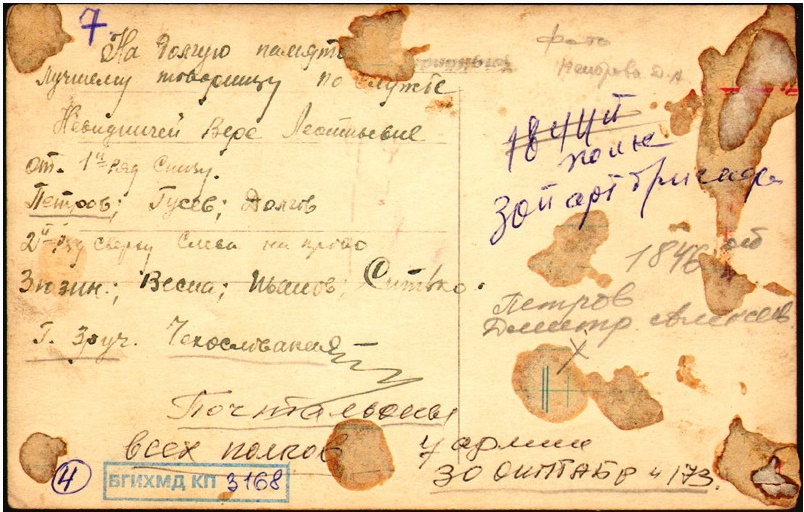 7
На долгую память
лучшему товарищу по службе
Невидничей Вере Леонтьевне
от. 1й ряд снизу.
Петров; Гусев; Долгов
2й ряд сверху слева на право
Зюзин; Весна; Иванов; Ситько.
Г. Зруч. Чехословакия
Почтальоны
всех полков
4
БГИХМД КП 3168
фото
Петрова Д.А.
1844й
полк
Зен арт бригада
1846
Петров
Дмитр. Алексеев
X
4 армии